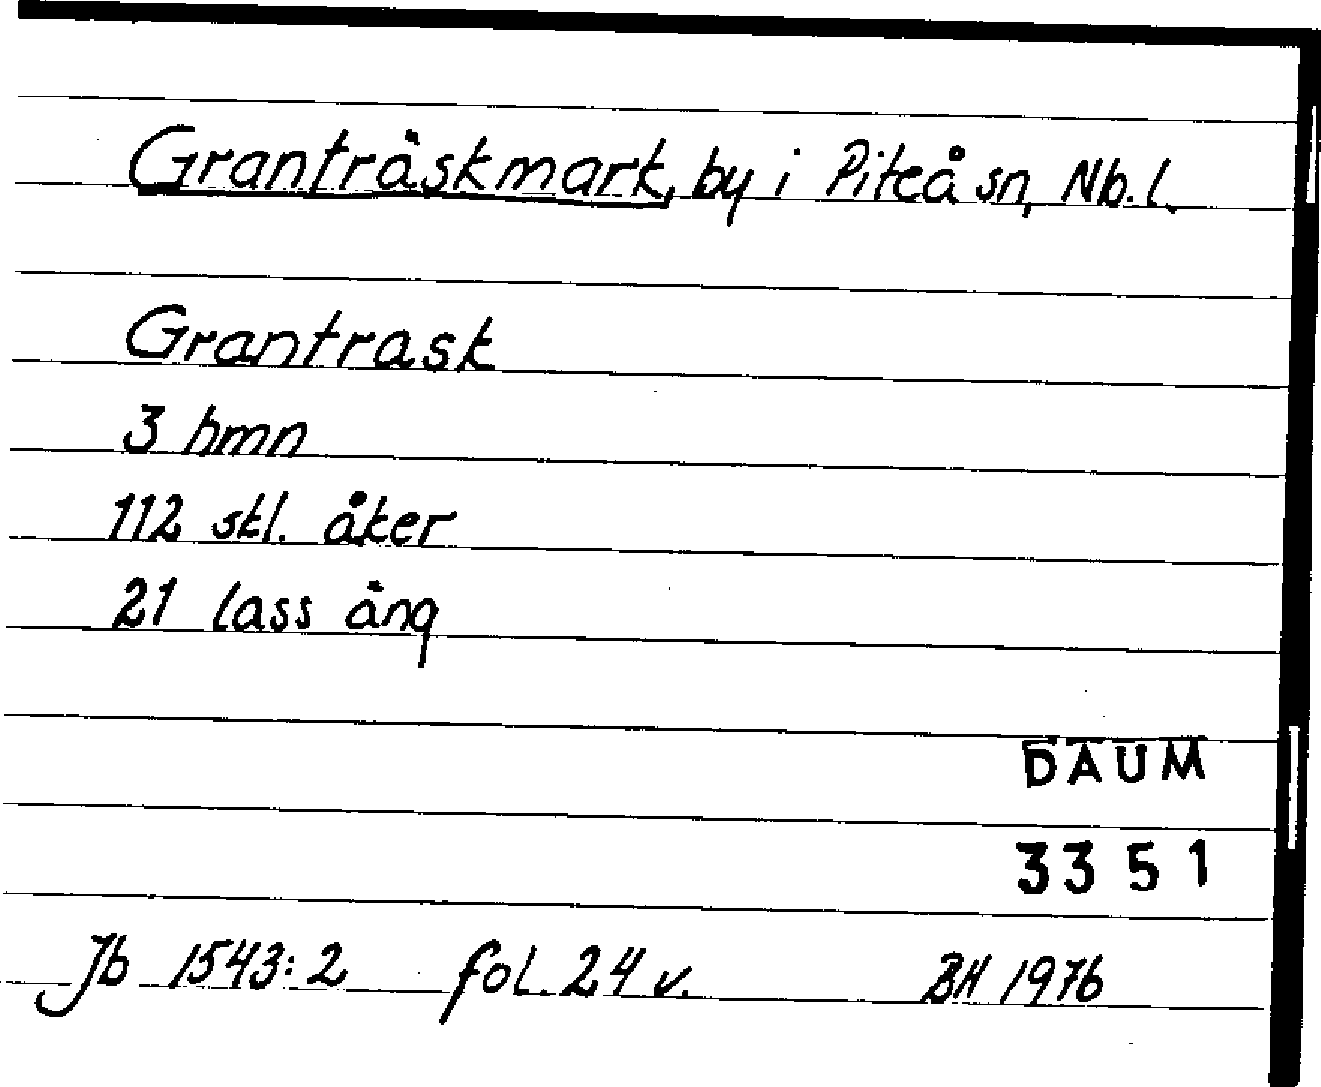 Granträskmark, by i Piteå sn, Nb. l.
Grantrask
3 hmn
112 skl. åker
21 lass äng
DAUM
3351
Jb 1543:2 fol. 24 v. BH 1976